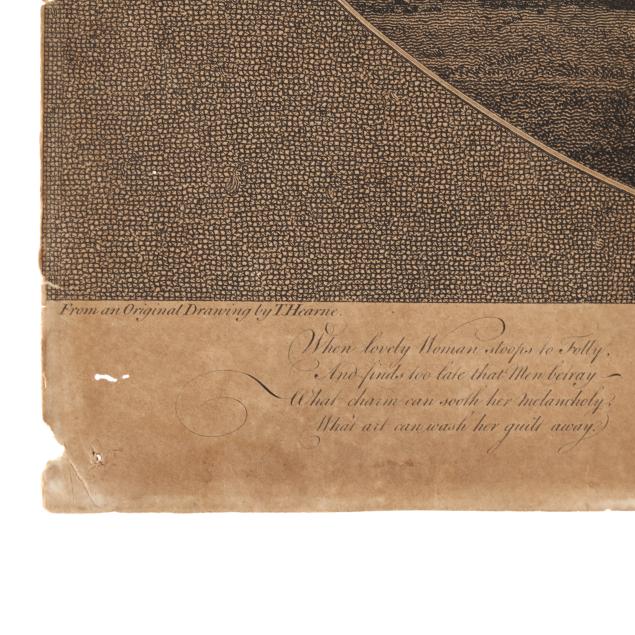 From an Original Drawing by T. Hearne.
When lovely Woman stoops to Folly,
And finds too late that Men betray —
What charm can sooth her melancholy?
What art can wash her guilt away?